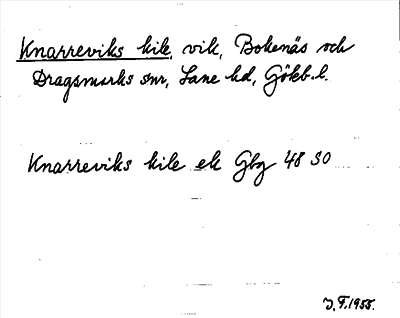 Knarreviks kile, vik, Bokenäs och
Dragsmarks snr, Lane hd, Gökb.l.
Knarreviks kile ek Gbg 48 SO
J.F. 1955.